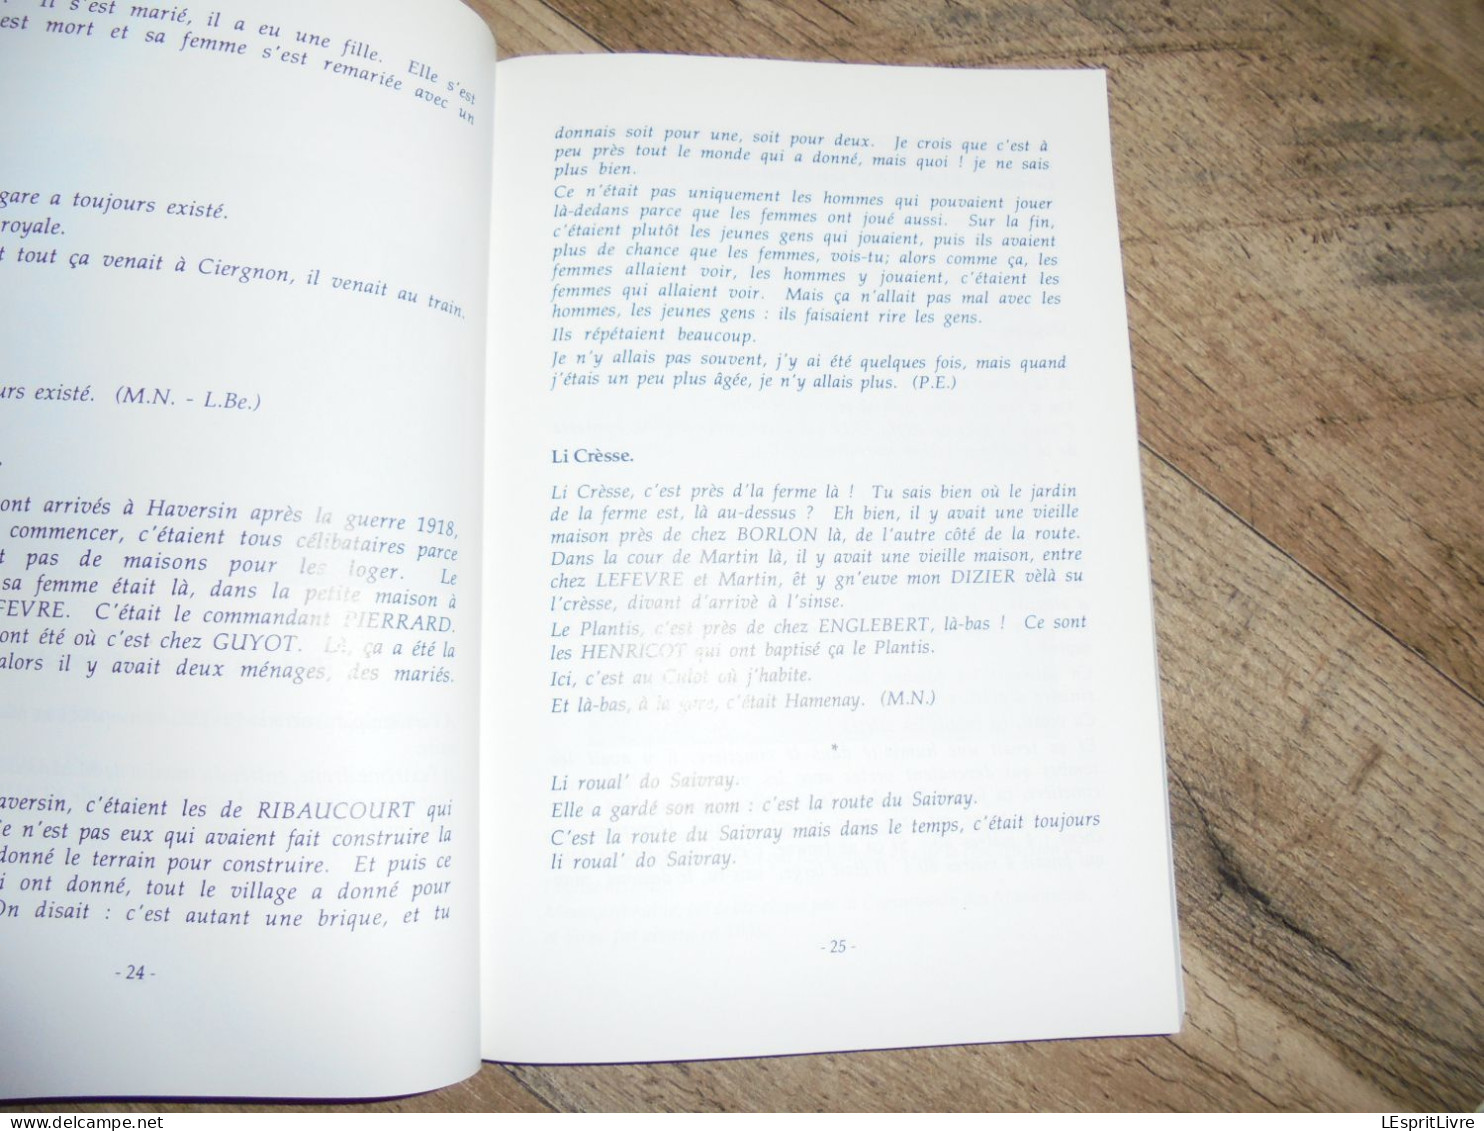 Il s'est marié, il a eu une fille. Elle s'est
est mort et sa femme s'est remariée avec un
gare a toujours existé.
royale.
t tout ça venait à Ciergnon, il venait au train.
urs existé. (M.N. - L.Be.)
ont arrivés à Haversin après la guerre 1918,
commencer, c'étaient tous célibataires parce
t pas de maisons pour les loger. Le
sa femme était là, dans la petite maison à
FEVRE. C'était le commandant PIERRARD.
ont été où c'est chez GUYOT. Là, ça a été la
alors il y avait deux ménages, des mariés.
aversin, c'étaient les de RIBAUCOURT qui
e n'est pas eux qui avaient fait construire la
donné le terrain pour construire. Et puis ce
i ont donné, tout le village a donné pour
On disait : c'est autant une brique, et tu
- 24 -
donnais soit pour une, soit pour deux. Je crois que c'est à
peu près tout le monde qui a donné, mais quoi ! je ne sais
plus bien.
Ce n'était pas uniquement les hommes qui pouvaient jouer
là-dedans parce que les femmes ont joué aussi. Sur la fin,
c'étaient plutôt les jeunes gens qui jouaient, puis ils avaient
plus de chance que les femmes, vois-tu; alors comme ça, les
femmes allaient voir, les hommes y jouaient, c'étaient les
femmes qui allaient voir. Mais ça n'allait pas mal avec les
hommes, les jeunes gens : ils faisaient rire les gens.
Ils répétaient beaucoup.
Je n'y allais pas souvent, j'y ai été quelques fois, mais quand
j'étais un peu plus âgée, je n'y allais plus. (P.E.)
Li Crèsse.
Li Crèsse, c'est près d'la ferme là ! Tu sais bien où le jardin
de la ferme est, là au-dessus ? Eh bien, il y avait une vieille
maison près de chez BORLON là, de l'autre côté de la route.
Dans la cour de Martin là, il y avait une vieille maison, entre
chez LEFEVRE et Martin, êt y gn'euve mon DIZIER vèlà su
l'crèsse, divant d'arrivè à l'sinse.
Le Plantis, c'est près de chez ENGLEBERT, là-bas ! Ce sont
les HENRICOT qui ont baptisé ça le Plantis.
Ici, c'est au Culot où j'habite.
Et là-bas, à la gare, c'était Hamenay. (M.N.)
*
Li roual' do Saivray.
Elle a gardé son nom : c'est la route du Saivray.
C'est la route du Saivray mais dans le temps, c'était toujours
li roual' do Saivray.
- 25 -
LEspritLivre